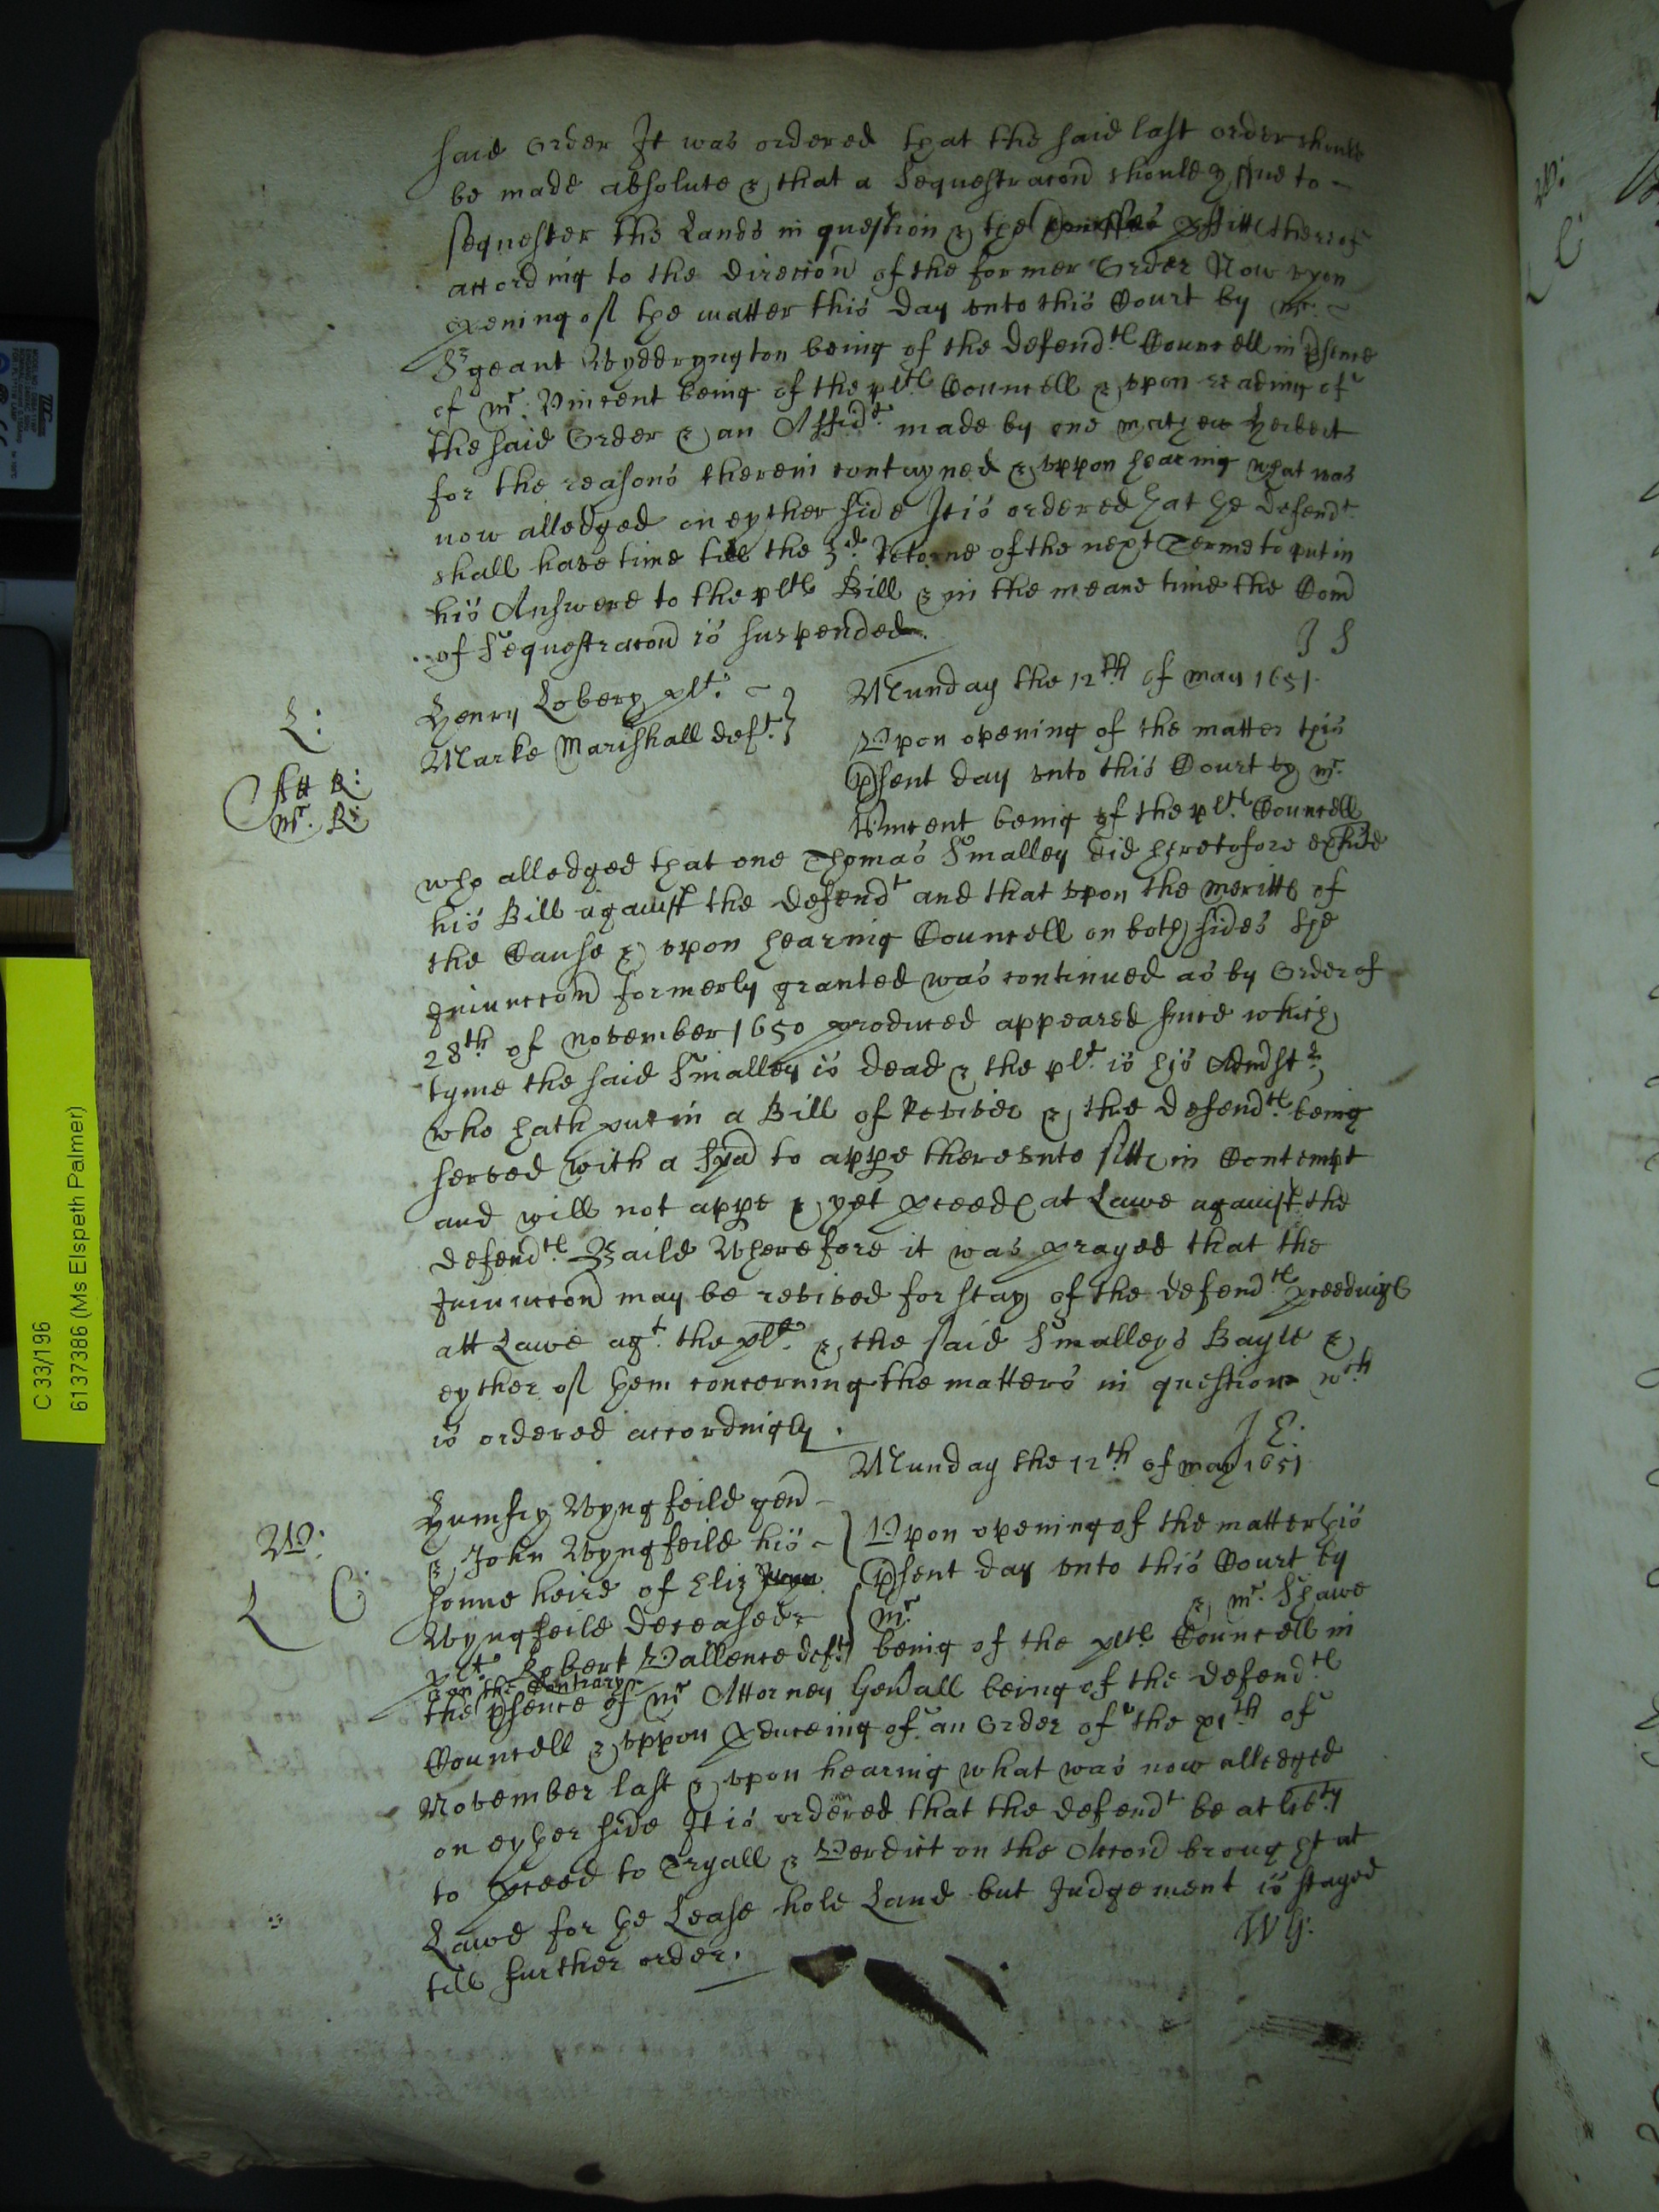 said Order It was ordered that the said last order should
be made absolute & that a Sequestracon should yssue to
sequester the Lands in question & the proffitts thereof
according to the direccon of the former Order Now upon
opening of the matter this day unto this Court by Mr.
Sergeant Wyddryngton being of the defendts Councell in psence
of Mr. Vincent being of the plts Councell & upon reading of
the said Order & an Affidt. made by one Mathew Herbert
for the reasons therein contayned & uppon hearing what was
now alledged on eyther side It is ordered that the defendt
shall have time till the 3d. Retorne of the next Terme to put in
his Answere to the plts Bill & in the meane time the Com
of Sequestracon is suspended.
J S
L:
Att R:
Mr. R:
Henry Lobery plt.
Marke Marshall deft.
Munday the 12th of May 1651.
Upon opening of the matter this
psent day unto this Court by Mr.
Vincent being of the plts Councell
who alledged that one Thomas Smalley did heretofore exhibite
his Bill against the defendt and that upon the meritts of
the Cause & upon hearing Councell on both sides the
Iniunccon formerly granted was continued as by Order of
28th of November 1650 produced appeared since which
tyme the said Smalley is dead & the plt. is his Admstr
who hath put in a Bill of Reviver & the defendts being
served with a Spa to appe thereunto sitts in Contempt
and will not appe & yet pceeds at Lawe against the
defendts Baile Wherefore it was prayed that the
Iniunccon may be revived for stay of the defendts pceedings
att Lawe agt. the plt. & the said Smalleys Bayle &
eyther of them concerning the matters in question wch
is ordered accordingly.
J E:
W:
L C:
Humfry Wyngfeild gen
& John Wyngfeild his
sonne heire of Eliz
Wyngfeild deceased
plts Robert Vallence deft
Munday the 12th of May 1651
Upon opening of the matter this
psent day unto this Court by
Mr. & Mr. Shawe
being of the plts Councell in
on the Contrary
the psence of Mr Attorney Genall being of the defendts
Councell & uppon pduceing of an Order of the xith of
November last & upon hearing what was now alledged
on eyther side It is ordered that the defendt be at libty
to pceed to Tryall & Verdict on the Accon brought at
Lawe for the Lease hole Land but Judgement is stayed
till further order.
W G:
C 33/196
6137386 (Ms Elspeth Palmer)